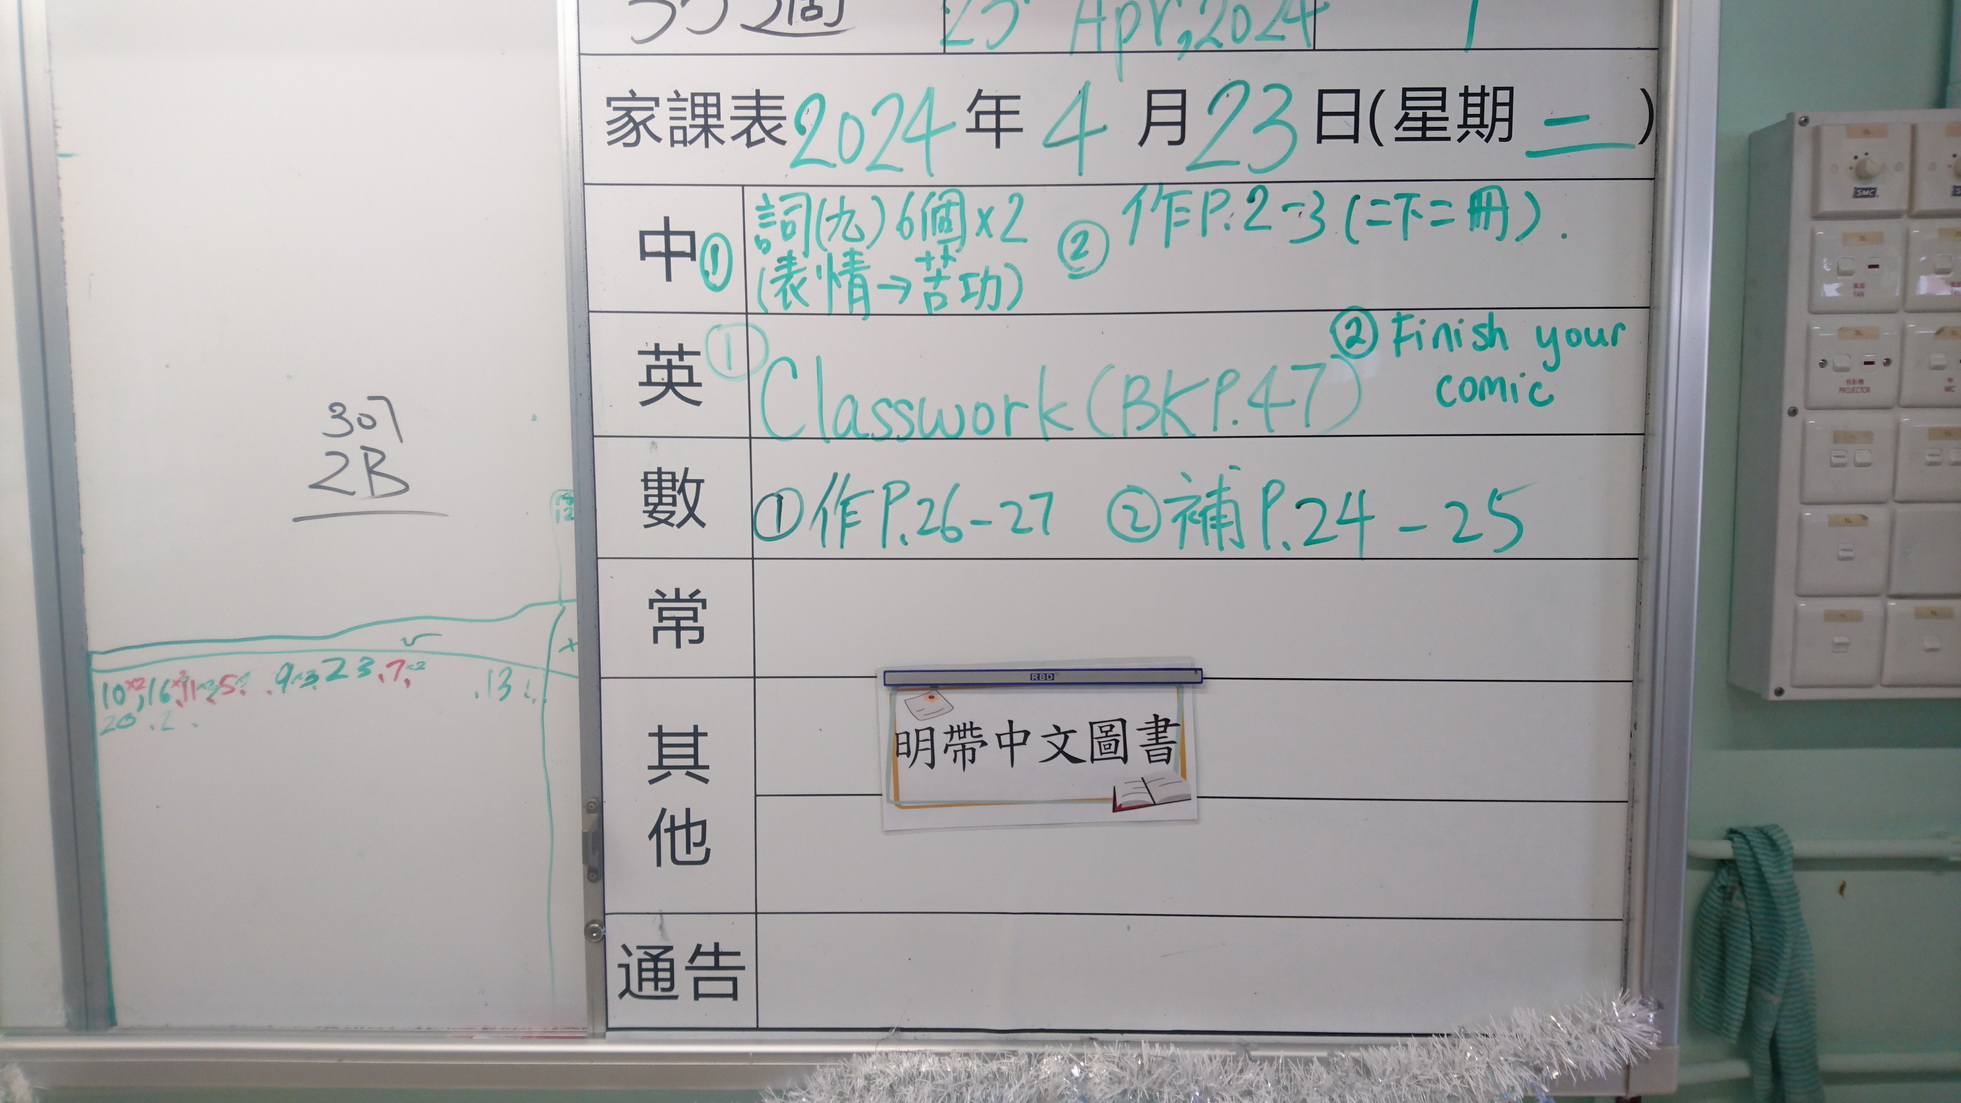 23 Apr, 2024
家課表 2024 年 4 月 23 日(星期 二 )
中 ① 詞(九) 6個×2 ② 作P.2-3 (二下二冊).
(表情→苦功)
英 ① Classwork (BK P.47) ② Finish your
comic
數 ①作P.26-27 ②補P.24-25
常
其
他
RBD
明帶中文圖書
通告
307
2B
10×2, 16 11 5 9 23, 7, 13
20 . 2
SMC